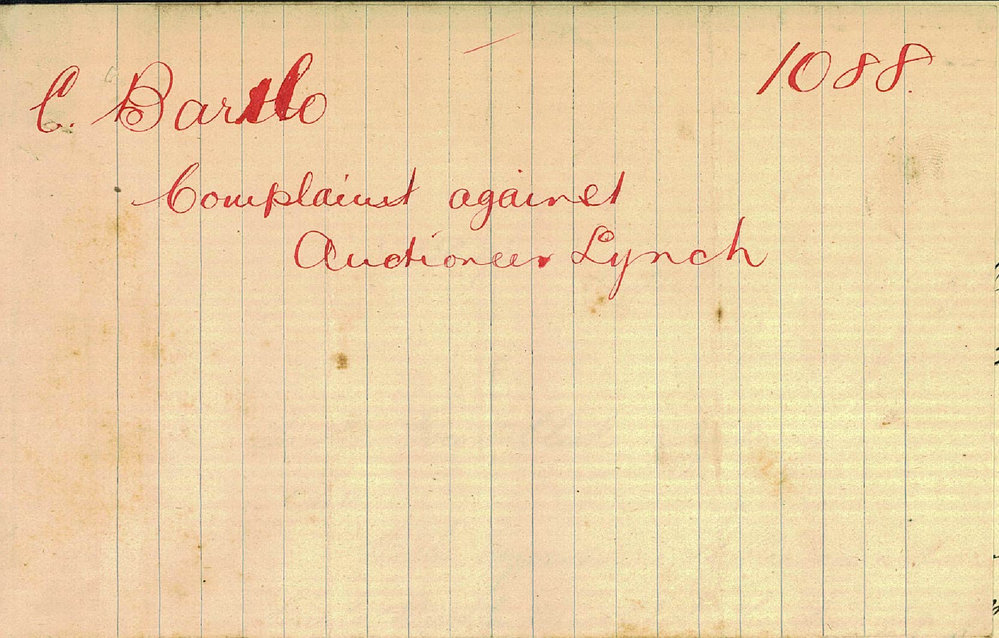 C. Bartlo 1088.
Complaint against
Auctioneer Lynch